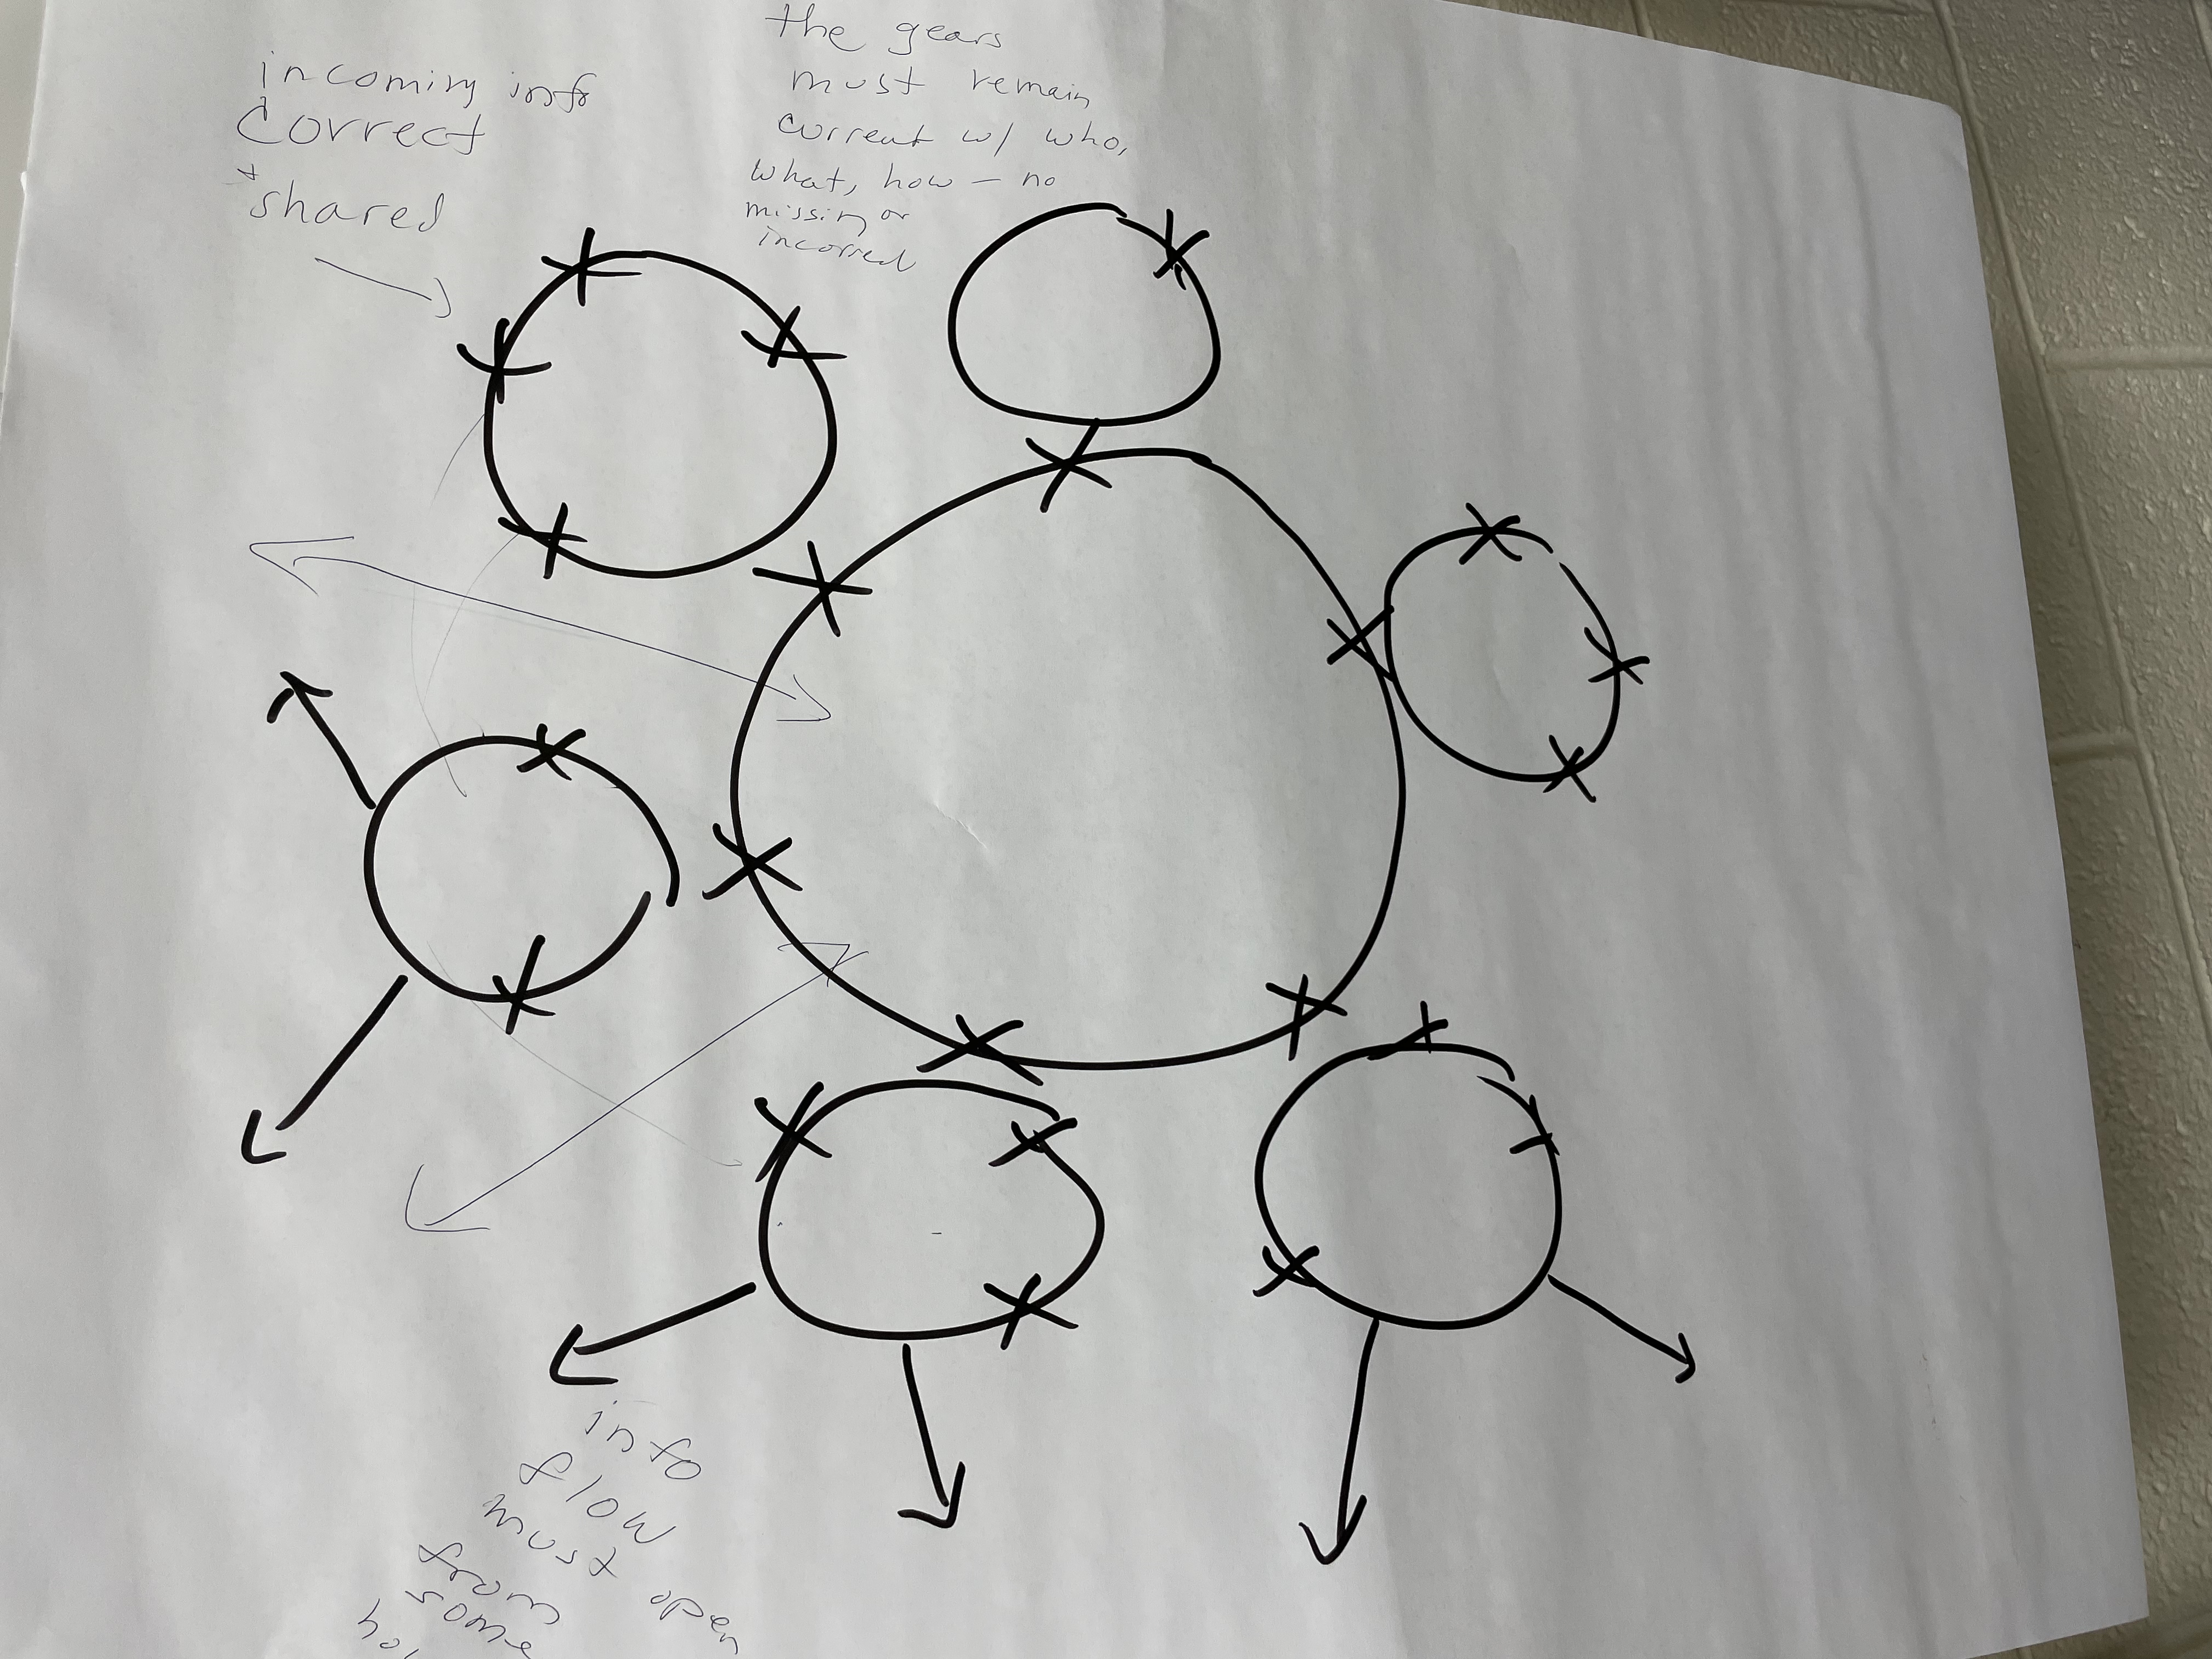 incoming info
correct
+
shared
the gears
must remain
current w/ who,
what, how — no
missing or
incorrect
info
flow
must open
from
some